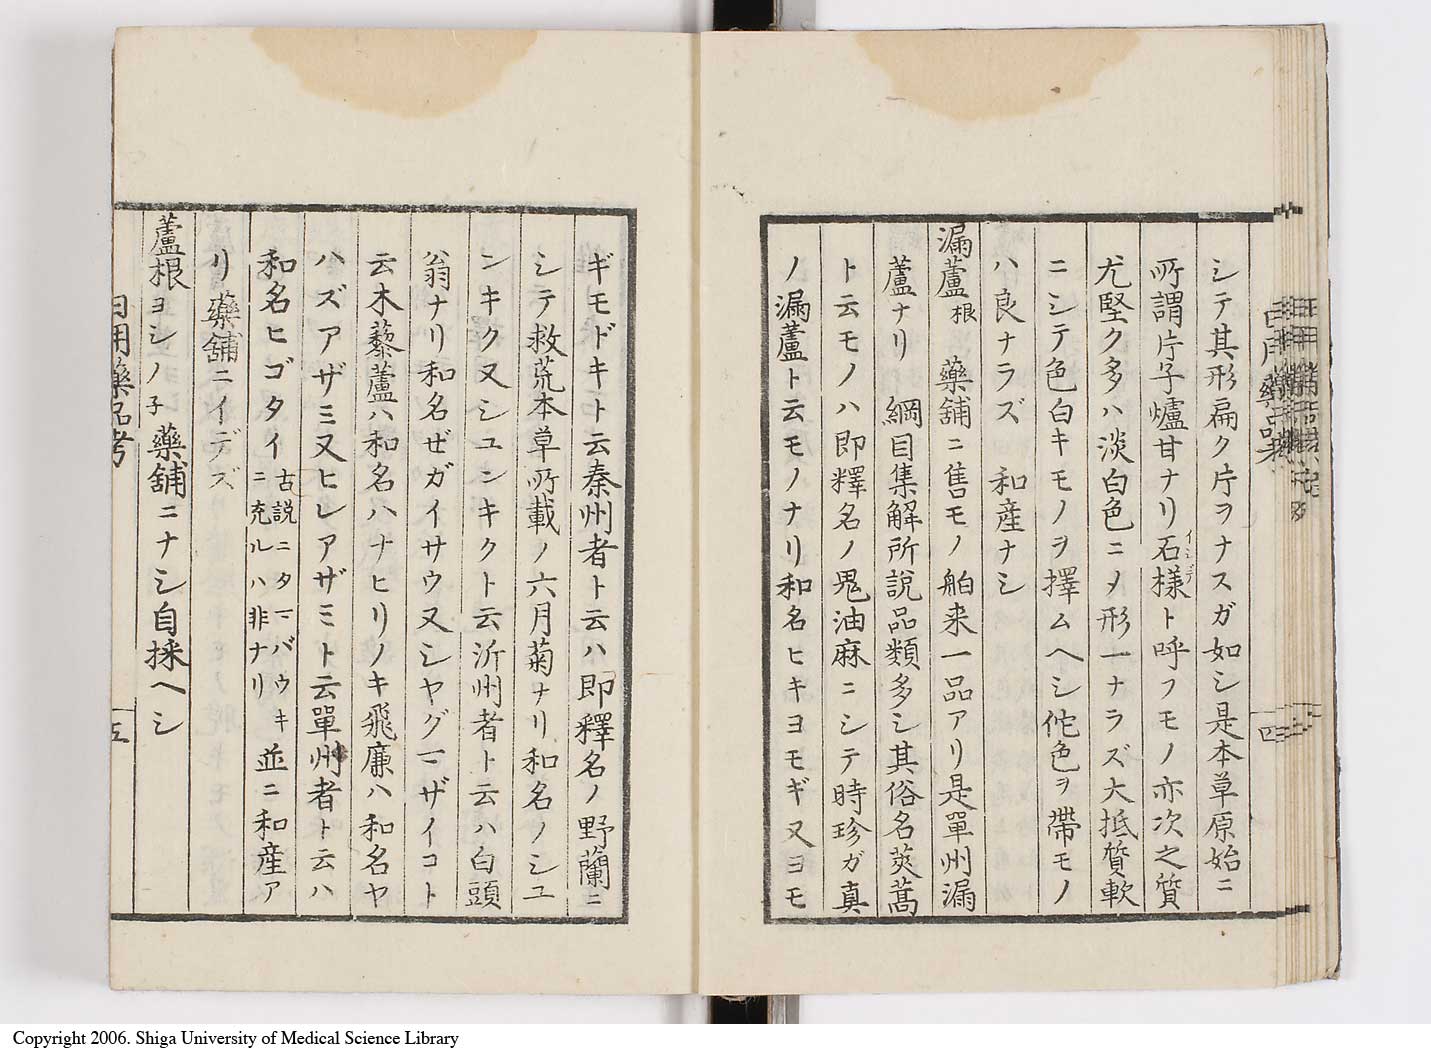 シテ其形扁ク片ヲナスガ如シ是本草原始ニ
所謂片子爐甘ナリ石様ト呼フモノ亦次之質
尤堅ク多ハ淡白色ニメ形一ナラズ大抵質軟
ニシテ色白キモノヲ擇ムヘシ佗色ヲ帶モノ
ハ良ナラズ 和産ナシ
漏蘆根 藥舖ニ售モノ舶来一品アリ是單州漏
蘆ナリ 綱目集解所說品類多シ其俗名莢蒿
ト云モノハ即釋名ノ鬼油麻ニシテ時珍ガ真
ノ漏蘆ト云モノナリ和名ヒキヨモギ又ヨモ
ギモドキト云秦州者ト云ハ即釋名ノ野蘭ニ
シテ救荒本草所載ノ六月菊ナリ和名ノシユ
ンキク又シユンキクト云沂州者ト云ハ白頭
翁ナリ和名ゼガイサウ又シヤグマザイコト
云木藜蘆ハ和名ハナヒリノキ飛廉ハ和名ヤ
ハズアザミ又ヒレアザミト云單州者ト云ハ
和名ヒゴタイ古説ニタマバウキニ充ルハ非ナリ並ニ和産ア
リ藥舖ニイデズ
蘆根ヨシノ子 藥舖ニナシ自採ヘシ
日用藥品考
五